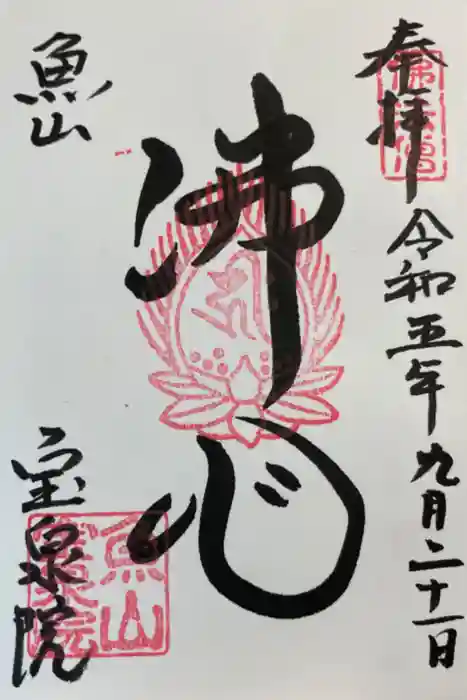 奉拝
令和五年九月二十一日
佛心
魚山
宝泉院
佛法僧
魚山